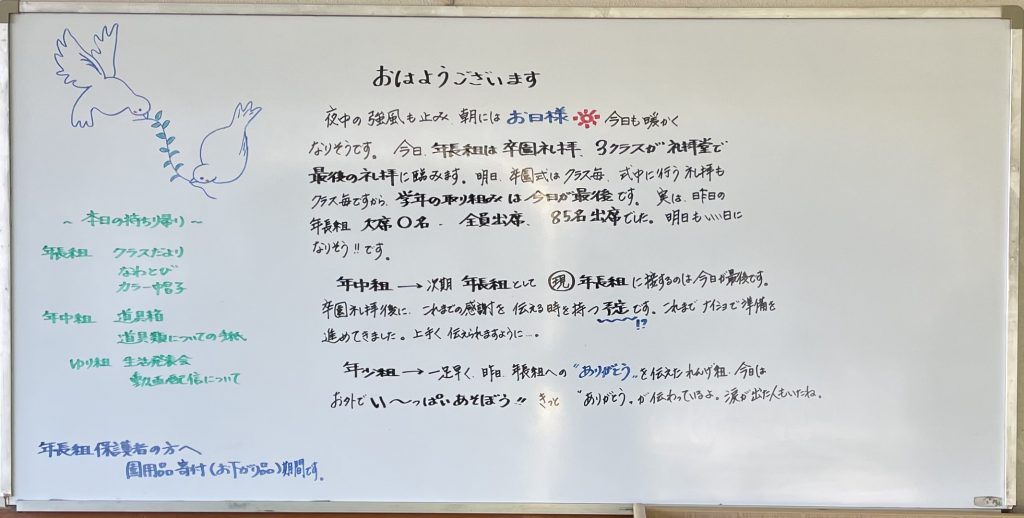 おはようございます
夜中の強風も止み、朝にはお日様 今日も暖かく
なりそうです。今日、年長組は卒園礼拝、3クラスが礼拝堂で
最後の礼拝に臨みます。明日、卒園式はクラス毎、式中に行う礼拝も
クラス毎ですから、学年の取り組みは今日が最後です。実は、昨日の
年長組 欠席0名、全員出席、85名出席でした。明日もいい日に
なりそう!!です。
年中組→次期 年長組として 現 年長組に接するのは今日が最後です。
卒園礼拝後に、これまでの感謝を伝える時を持つ予定です。これまでナイショで準備を
!?
進めてきました。上手く伝えられますように…。
年少組→一足早く、昨日、年長組への"ありがとう"を伝えたれんげ組、今日は
お外でい〜っぱいあそぼう!! きっと "ありがとう"が伝わっているよ。涙が出た人もいたね。
〜本日の持ち帰り〜
年長組 クラスだより
なわとび
カラー帽子
年中組 道具箱
道具類についての手紙
ゆり組 生活発表会
動画配信について
年長組保護者の方へ
園用品寄付(お下がり品)期間です。